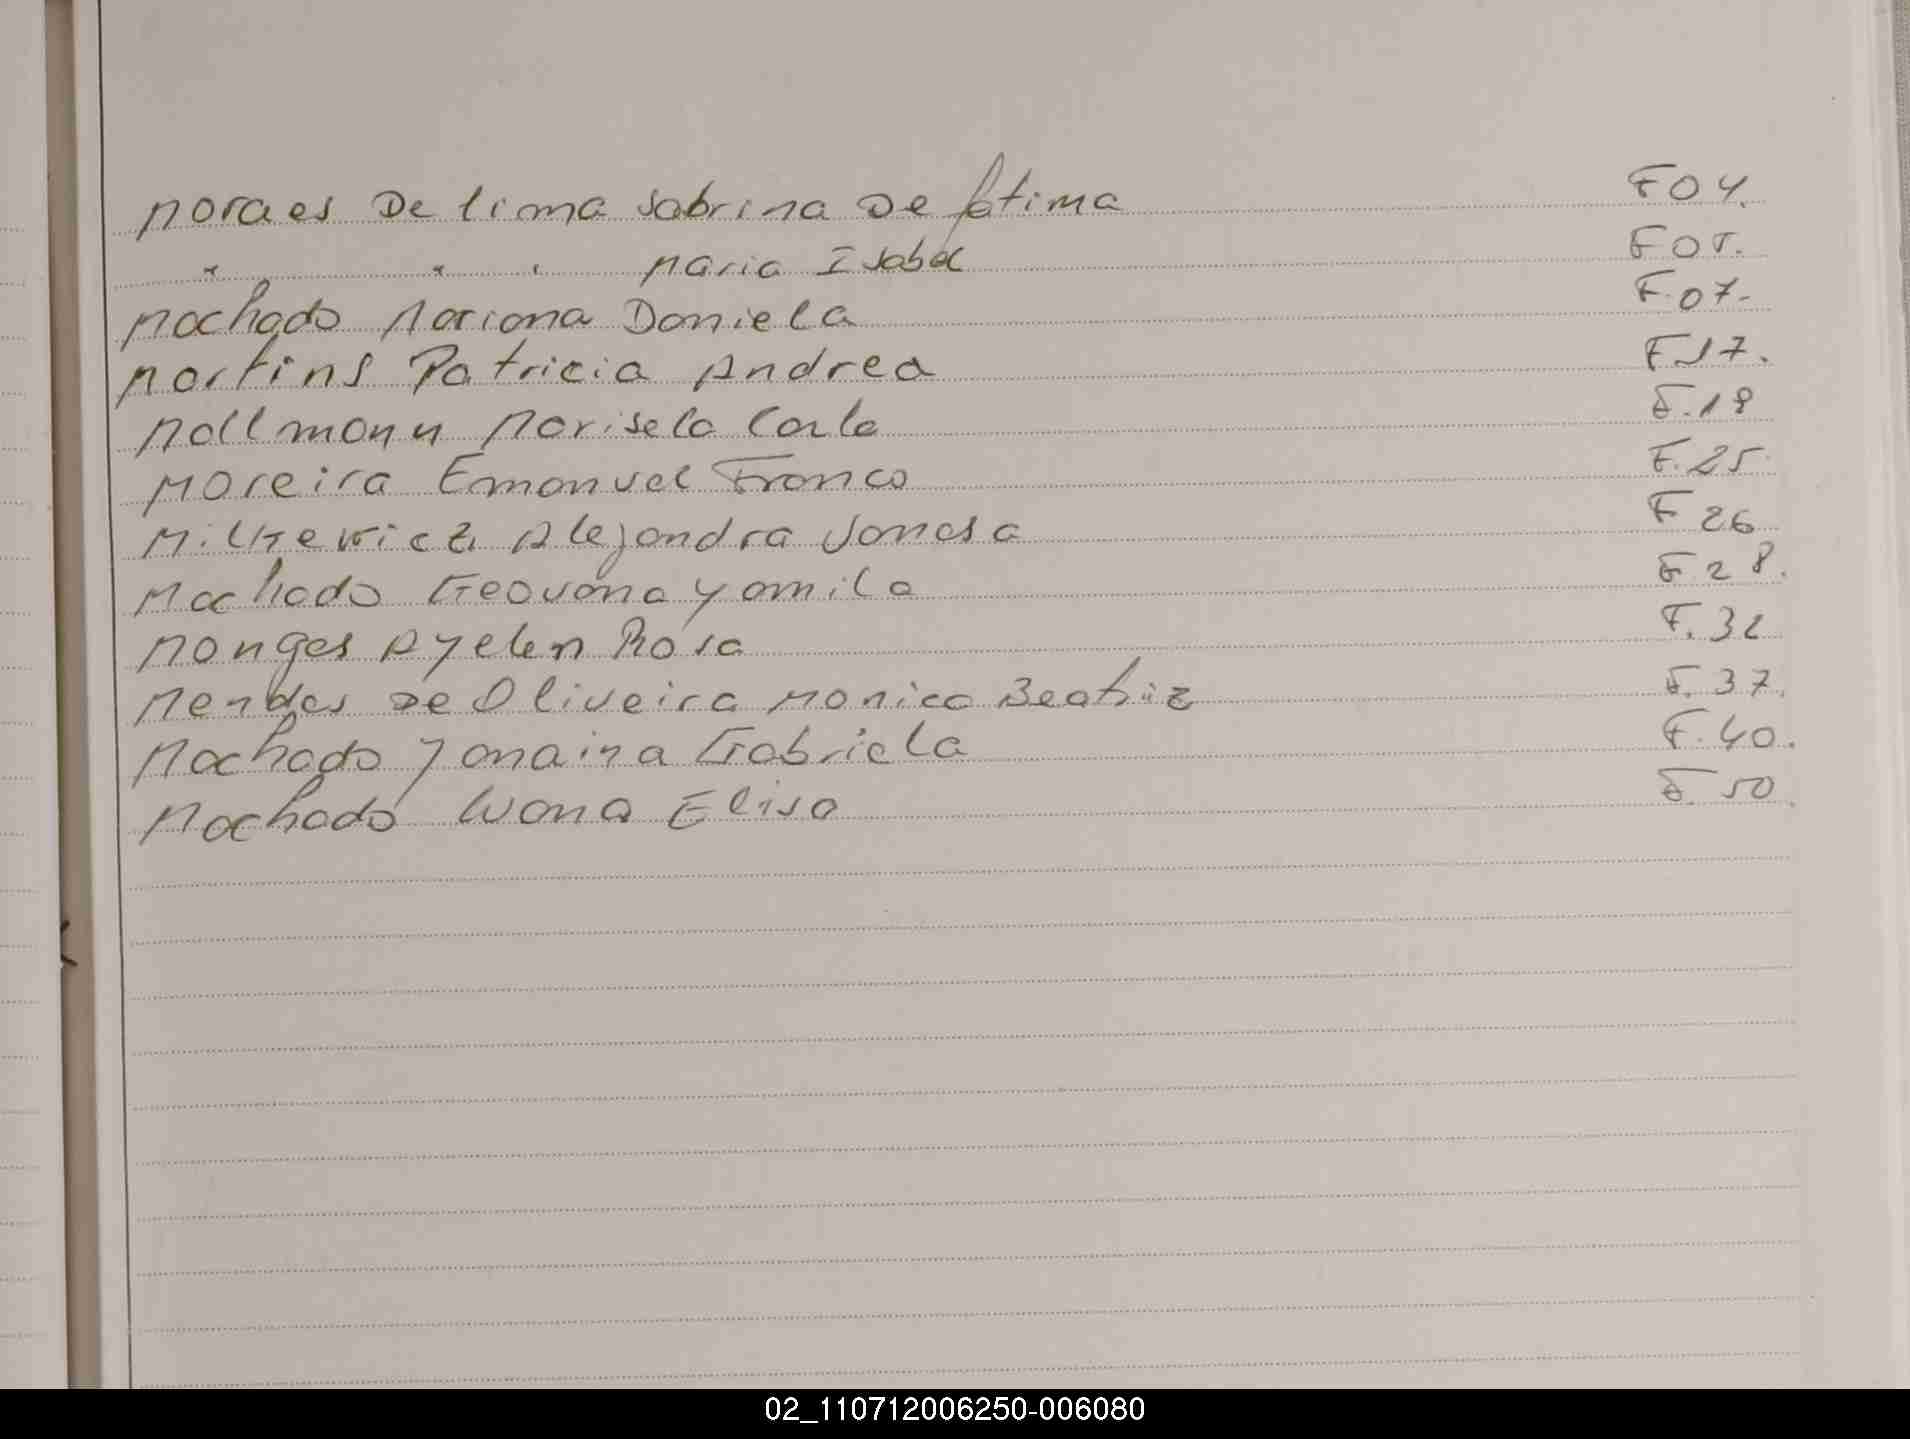 Moraes De lima Sabrina De fatima F04.
" " " Maria Isabel F05.
Machado Mariana Daniela F.07.
Martins Patricia Andrea F17.
Mallmann Marisela Carla F.18
Moreira Emanuel Franco F.25
Alejandra F26
Machado Geovana Yamila F28.
Monges Ayelen Rosa F.32
Mendes De Oliveira Monica Beatriz F.37.
Machado Yanaina Gabriela F.40.
Machado Luana Elisa F.50.
02_110712006250-006080